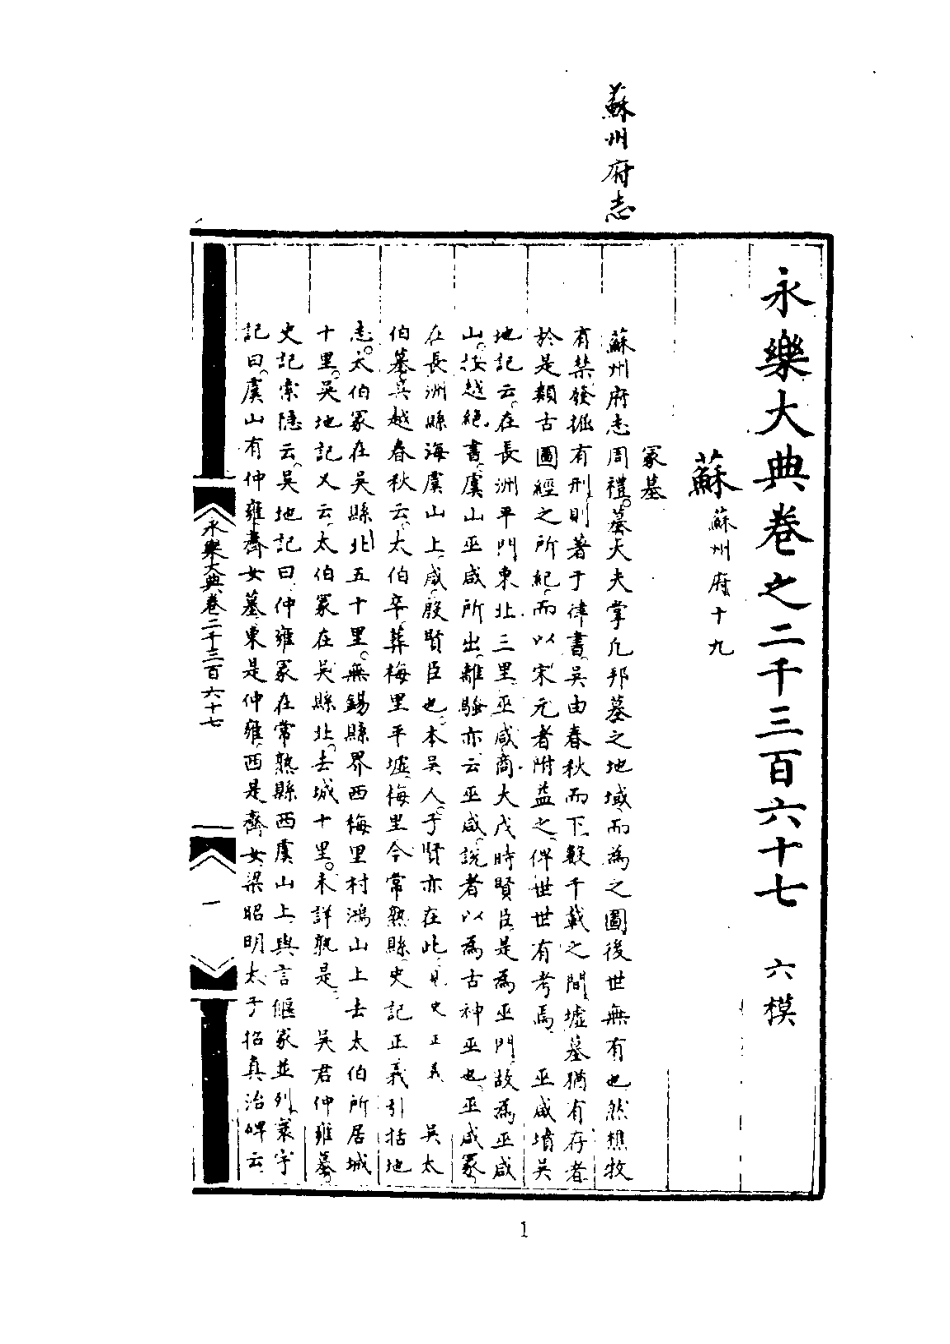 蘇州府志
永樂大典卷之二千三百六十七 六模
蘇 蘇州府十九
冢墓
蘇州府志周禮墓大夫掌凡邦墓之地域而為之圖後世無有也然樵牧
有禁發掘有刑則著于律書吳由春秋而下數千載之間墟墓猶有存者
於是類古圖經之所紀而以宋元者附益之俾世世有考焉 巫咸墳吳
地記云在長洲平門東北三里巫咸商大戊時賢臣是為巫門故為巫咸
山按越絕書虞山巫咸所出離騷亦云巫咸說者以為古神巫也巫咸冢
在長洲縣海虞山上咸殷賢臣也本吳人子賢亦在此見史正義 吳太
伯墓吳越春秋云太伯卒葬梅里平墟梅里今常熟縣史記正義引括地
志太伯冢在吳縣北五十里無錫縣界西梅里村鴻山上去太伯所居城
十里吳地記又云太伯冢在吳縣北去城十里未詳孰是 吳君仲雍墓
史記索隱云吳地記曰仲雍冢在常熟縣西虞山上與言偃冢並列寰宇
記曰虞山有仲雍齊女墓東是仲雍西是齊女梁昭明太子招真治碑云
永樂大典卷二千三百六十七
一
1